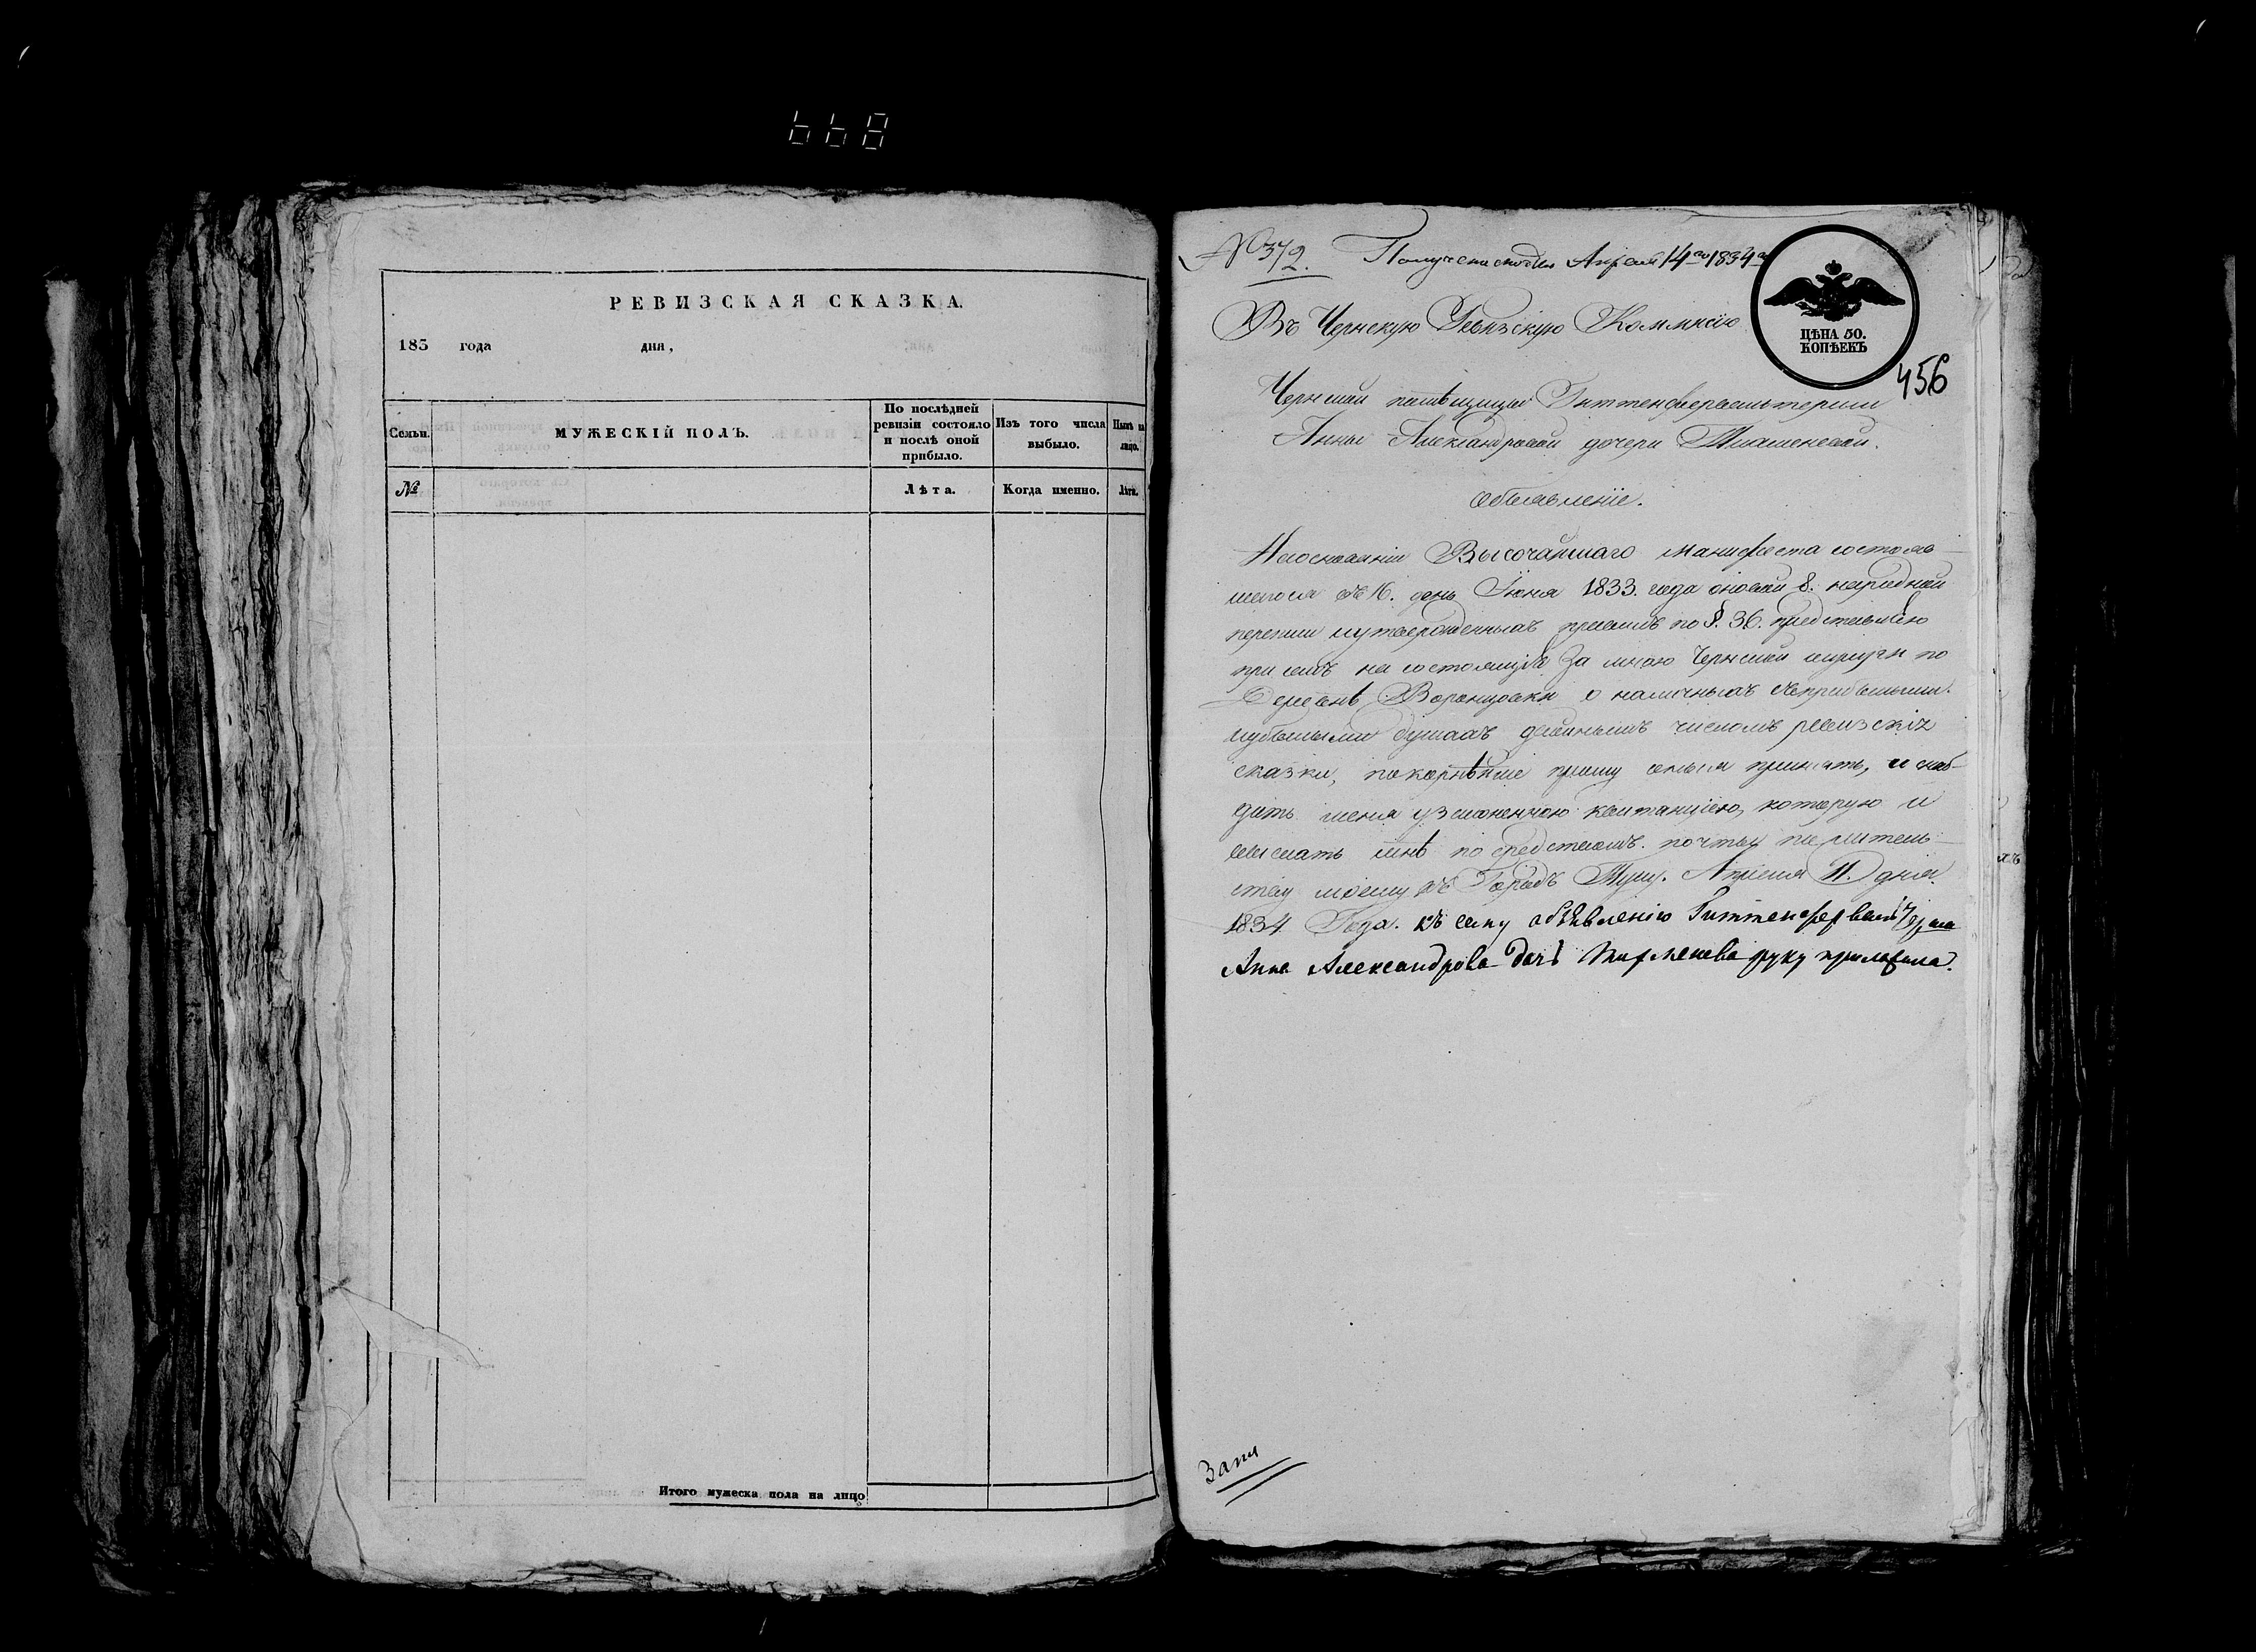 РЕВИЗСКАЯ СКАЗКА.
183 года дня,
Семьи.
МУЖЕСКІЙ ПОЛЪ.
По послѣдней ревизіи состояло и послѣ оной прибыло.
Изъ того числа выбыло.
Нынѣ на лицо.
№
Лѣта.
Когда именно.
Лѣта.
Итого мужеска пола на лицо
№ 372. Получена Апреля 14го 1834го
ЦѢНА 50.
КОПѢЕКЪ
456
Въ Чернскую Ревизскую Коммисію
Чернской помѣщицы
Анны Александровой дочери
Объявленіе.
На основаніи Высочайшаго манифеста состояв-
шагося въ 16. день Іюня 1833. года о новой 8. народной
переписи и утвержденныхъ правилъ по §. 36. представляю
при семъ на состоящія за мною Чернской округи по
Деревнѣ Воронцовки о наличныхъ съ прибылыми
и убылыми душахъ двойнымъ числомъ ревизскія
сказки, покорнѣйше прошу оныя принять, и снаб-
дить меня узаконенною квитанціею, которую и
выслать мнѣ по средствомъ почты по жительь-
ству моему въ Городъ Тулу. Апреля 11. дня
1834 Года. Къ сему объявленію
Анна Александрова дочь руку приложила.